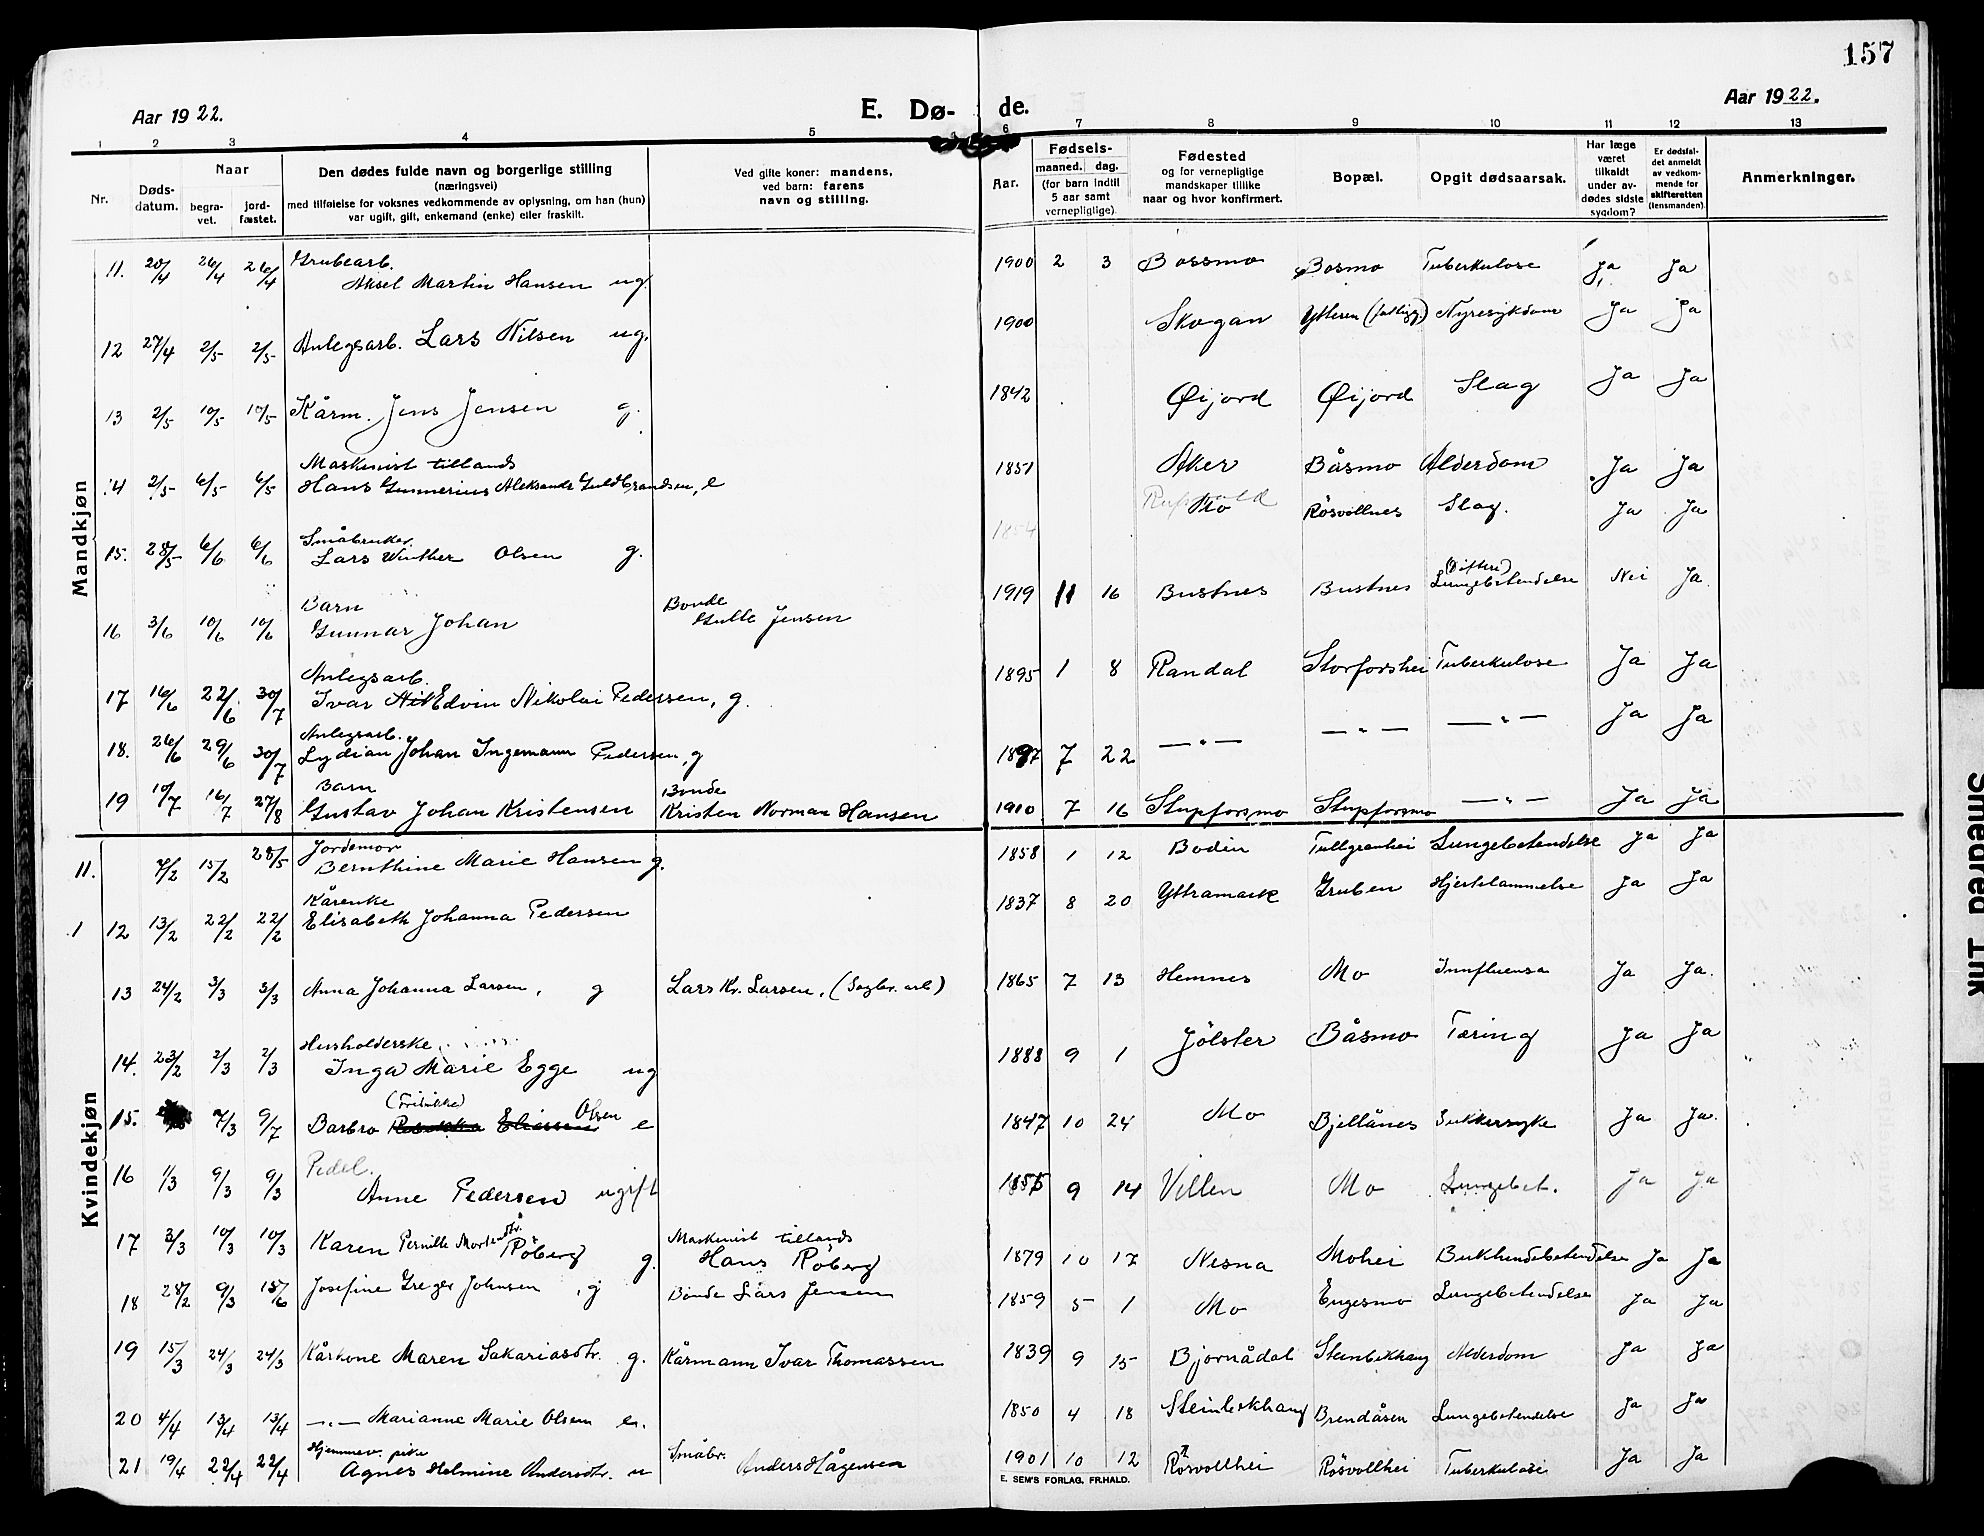 157
Aar 1922.
E. Dø- de.
Aar 1922.
1 2 3 4 5 6 7 8 9 10 11 12 13
Nr.
Døds-
datum.
Naar
begra-
vet.
jord-
fæstet.
Den dødes fulde navn og borgerlige stilling
(næringsvei)
med tilføielse for voksnes vedkommende av oplysning, om han (hun)
var ugift, gift, enkemand (enke) eller fraskilt.
Ved gifte koner: mandens,
ved barn: farens
navn og stilling.
Aar.
Fødsels-
maaned. dag.
(for barn indtil
5 aar samt
vernepligtige).
Fødested
og for vernepligtige
mandskaper tillike
naar og hvor konfirmert.
Bopæl.
Opgit dødsaarsak.
Har læge
været
tilkaldt
under av-
dødes sidste
sygdom?
Er dødsfal-
det anmeldt
av vedkom-
mende for
skifteretten
(lensmanden).
Anmerkninger.
Mandkjøn
11. 20/4 26/4 26/4 Grubearb. Aksel Martin Hansen ug. 1900 2 3 Bossmo Bosmo Tuberkulose Ja Ja
12 27/4 2/5 2/5 Anlegsarb. Lars Nilsen ug. 1900 Skogan Ytteren Nyresykdom Ja Ja
13 2/5 10/5 10/5 Kårm. Jens Jensen g. 1842 Øijord Øijord Slag Ja Ja
14 2/5 6/5 6/5 Maskinist tillands Hans Gunnerius Aleksandr Guldbrandsen, e 1851 Aker Båsmo Alderdom Ja Ja
15. 28/5 6/6 6/6 Småbruker Lars Winther Olsen g. 1854 Mo Røsvollnes Slag. Ja Ja
16 3/6 10/6 10/6 Barn Gunnar Johan Bonde Gulle Jensen 1919 11 16 Bustnes Bustnes (Difteri) Lungebetendelse Nei Ja.
17 16/6 22/6 30/7 Anlegsarb. Ivar Edvin Nikolai Pedersen, g. 1895 1 8 Randal Storforshei Tuberkulose Ja Ja
18. 26/6 29/6 30/7 Anlegsarb. Lydian Johan Ingemann Pedersen, g 1897 7 22 — „ — — „ — — „ — Ja Ja
19 10/7 16/7 27/8 Barn Gustav Johan Kristensen Bonde Kristen Norman Hansen 1910 7 16 Stupforsmo Stupforsmo — „ — Ja Ja
Kvindekjøn
11. 7/2 15/2 28/5 Jordemor Bernthine Marie Hansen g. 1858 1 12 Bodin Tullgrenhei Lungebetendelse Ja Ja
1 12 13/2 22/2 22/2 Kårenke Elisabeth Johanna Pedersen 1837 8 20 Yttramark Gruben Hjertelammelse Ja Ja
13 24/2 3/3 3/3 Anna Johanna Larsen, g Lars Kr. Larsen, (Sagbr. arb) 1865 7 13 Hemnes Mo Innfluensa Ja Ja.
14. 23/2 2/3 2/3 Husholderske Inga Marie Egge ug 1888 9 1 Jölster Båsmo Tæring Ja Ja
15. 7/3 9/7 Barbro Olsen e 1847 10 24 Mo Bjellånes Sukkersyke Ja Ja.
16 1/3 9/3 9/3 Pedel. Anne Pedersen ugift 1855 9 14 Villen Mo Lungebet. Ja Ja
17 3/3 10/3 10/3 Karen Pernille Mortensdtr. Röberg g. Maskinist tillands Hans Röberg 1879 10 17 Nesna Mohei Bukhindebetendelse Ja Ja
18 28/2 9/3 18/6 Josefine Greger Johnsen, g Bonde Lars Jensen 1859 5 1 Mo Engesmo Lungebetendelse Ja Ja
19 15/3 24/3 24/3 Kårkone Maren Sakariasdtr. g. Kårmann Ivar Thomassen 1839 9 15 Bjornådal Steinbekhaug Alderdom Ja Ja
20 4/4 13/4 13/4 — „ — Marianne Marie Olsen e. 1850 4 18 Steinbekhaug Brendåsen Lungebetendelse Ja Ja
21 19/4 22/4 22/4 Hjemmev. pike Agnes Helmine Andersdtr. u Småbr. Anders Hågensen 1901 10 12 Røsvollhei Røsvollhei Tuberkulose Ja Ja
E. SEM'S FORLAG, FR.HALD.